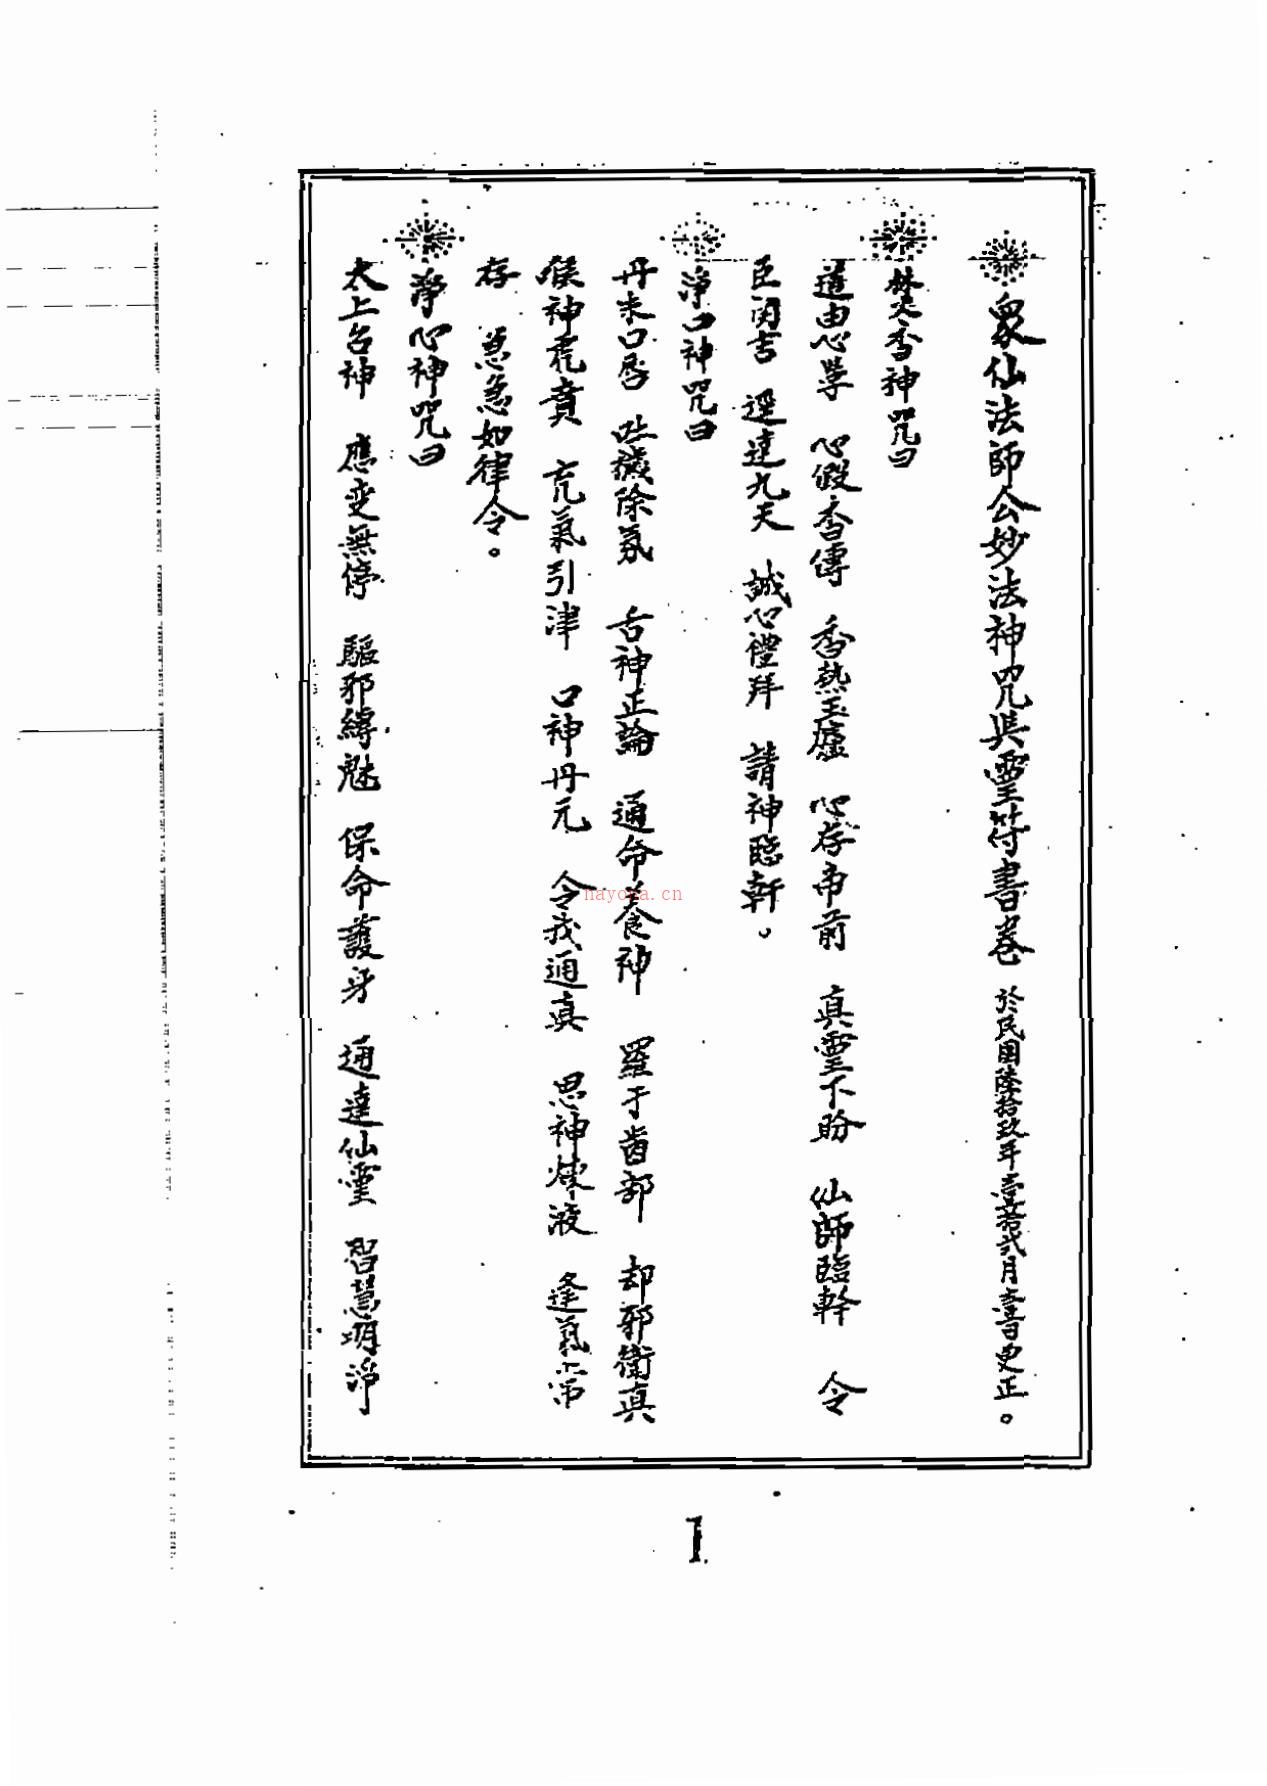 眾仙法師公妙法神咒與靈符書卷 於民國陸拾玖年壹拾貳月壹書更正。
焚香神咒曰
道由心學 心假香傳 香热玉爐 心存帝前 真靈下盼 仙師臨幹 令
臣関告 逕達九天 誠心禮拜 請神臨軒。
淨口神咒曰
丹朱口唇 吐穢除氛 舌神正論 通命养神 羅于齒部 却邪衛真
喉神虎賁 炁氣引津 口神丹元 令我通真 思神煉液 逢氣常
存 急急如律令。
淨心神咒曰
太上台神 應变無停 驅邪縛魅 保命護身 通達仙靈 智慧明淨
1
nayona.cn